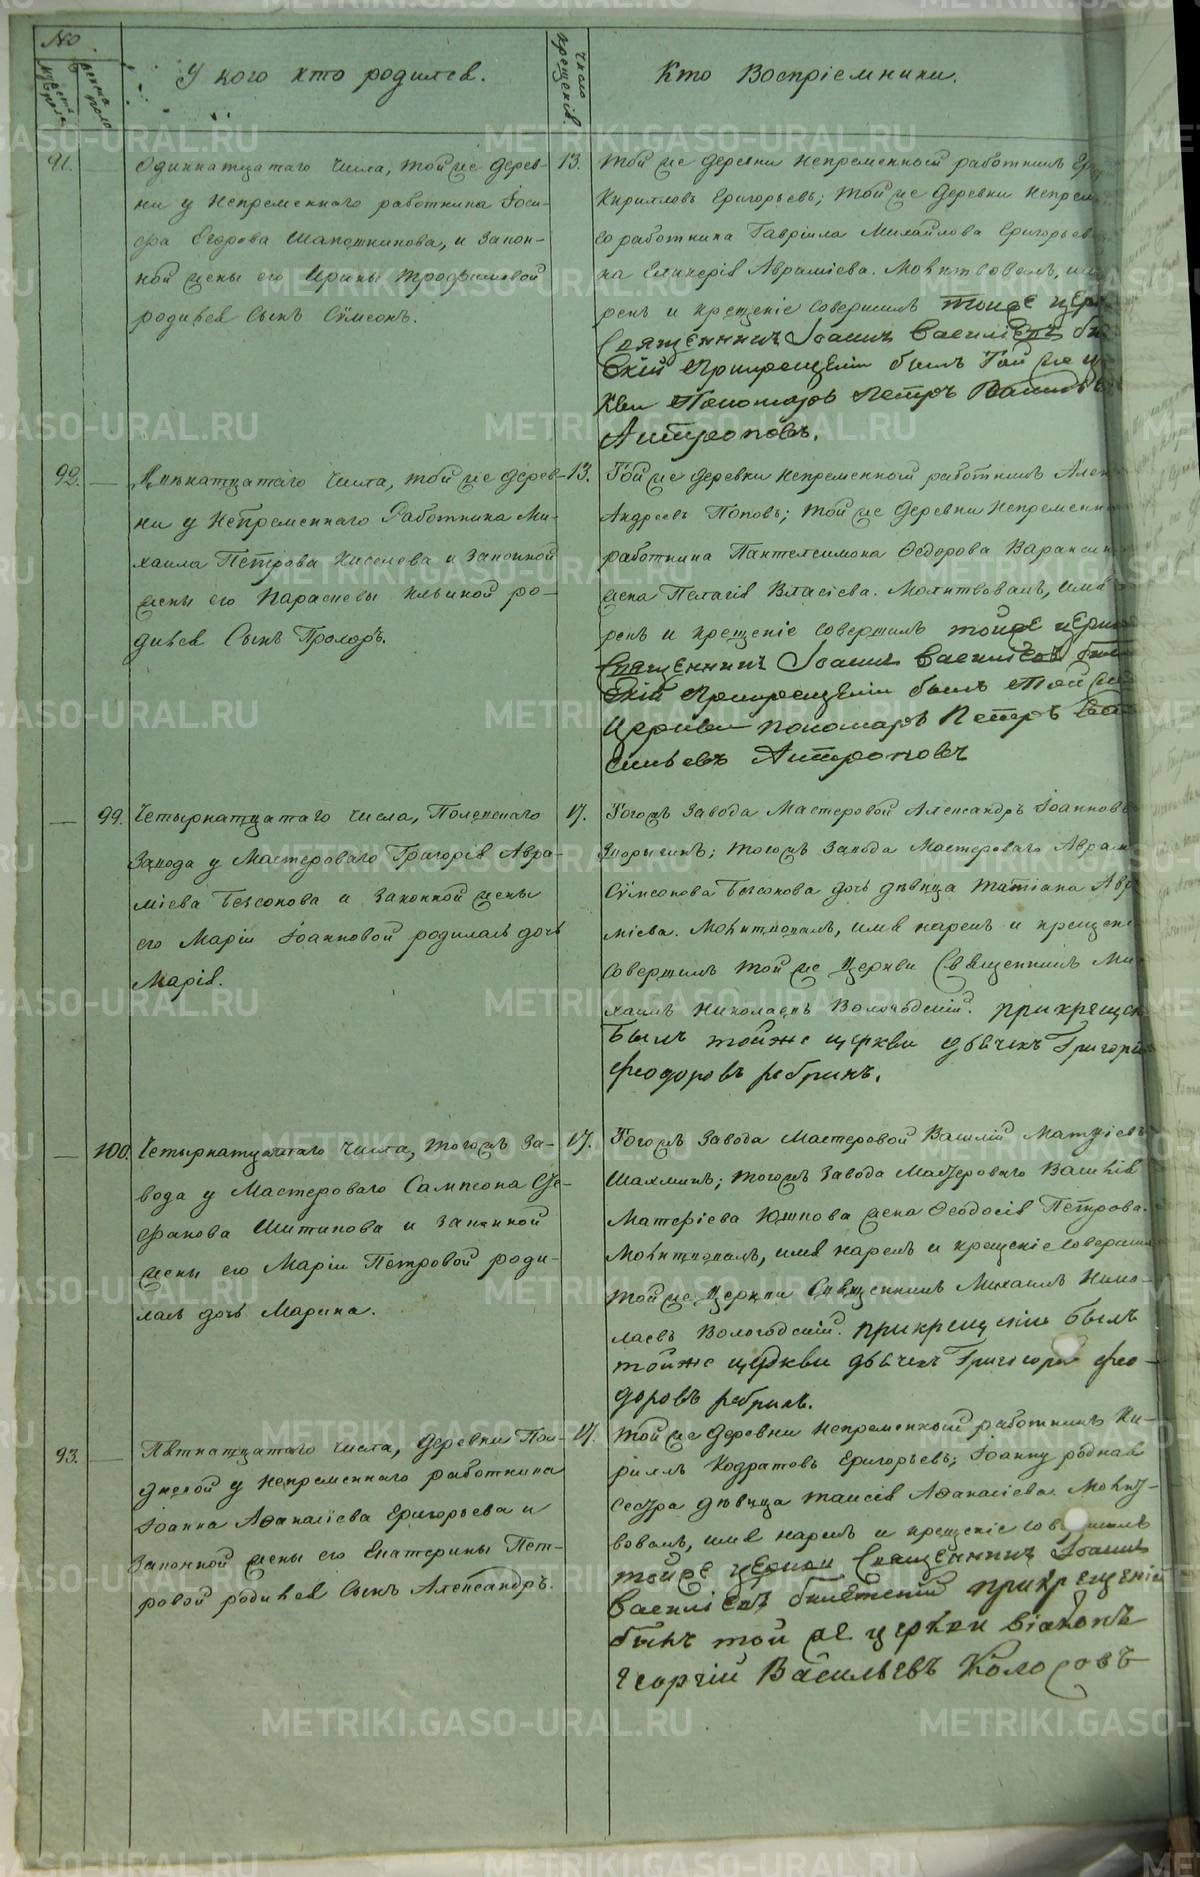 №
мужеска пола
женска пола
У кого кто родился.
Число крещенія.
Кто Воспріемники.
91.
Одиннатцатаго числа, той же дерев-
ни у Непременнаго работника Іоси-
фа Егорова Шапошникова, и закон-
ной жены его Ирины Трофимовой
родился Сынъ Сѵмеонъ.
13.
Той же деревни Непременной работникъ
Кирилловъ Григорьевъ; той же деревни Непрем
го работника Гавріила Михайлова Григорьев
на Гликерія Аврамієва. Молитвовалъ, имя
ренъ и крещеніе совершилъ тойже цер
Священникъ Іоаннъ Василіевъ би
скій прикрещеніи былъ той же ц
кви Пономарь Петръ Васильевъ
Антроповъ.
92.
Двѣнатцатаго числа, той же дерев-
ни у Непременнаго Работника Ми-
хаила Петрова Киселева и законной
жены его Параскевы Ильиной ро-
дился Сынъ Прохоръ.
13.
Той же деревни Непременной работникъ Алек
Андреевъ Поповъ; той же деревни Непременна
работника Пантелеимона Ѳедорова Вараксин
жена Пелагія Власієва. Молитвовалъ, имя
ренъ и крещеніе совершилъ тойже церкв
Священникъ Іоаннъ Василіевъ били
скій прикрещеніи былъ той же
Церкви пономарь Петръ Ва
сильевъ Антроповъ
99.
Четырнатцатаго числа, Полевскаго
Завода у Мастероваго Григорія Авра-
міева Безсонова и Законной жены
его Маріи Іоанновой родилась дочь
Марія.
17.
Тогожъ Завода Мастеровой Александръ Іоанновъ
Зюрыгинъ; тогожъ Завода Мастероваго Аврам
Сѵмеонова Безсонова дочь дѣвица Татіана Авр
міева. Молитвовалъ, имя нарекъ и крещені
совершилъ той же Церкви Священникъ Ми-
хаилъ Николаевъ Вологодскій. прикрещен
былъ тойже церкви дьячекъ Григорій
Феодоровъ Ребринъ.
100.
Четырнатцатаго числа, тогожъ за-
вода у Мастероваго Сампсона Сте-
фанова Шитикова и законной
жены его Маріи Петровой роди-
лась дочь Марина.
17.
Тогожъ Завода Мастеровой Василій Матѳіевъ
Шахминъ; тогожъ завода Мастероваго Василія
Матѳіева Юшкова жена Ѳеодосія Петрова.
Молитвовалъ, имя нарекъ и крещеніе совершил
той же Церкви Священникъ Михаилъ Нико-
лаевъ Вологодскій. прикрещеніи былъ
тойже церкви дьячекъ Григорій Фео-
доровъ Ребринъ.
93.
Пятнатцатаго числа, деревни Пол-
дневой у Непременнаго работника
Іоанна Аѳанасіева Григорьева и
Законной жены его Екатерины Пет-
ровой родился Сынъ Александръ.
17.
Той же деревни Непременной работникъ Ки-
риллъ Кодратовъ Григорьевъ; Іоанну родная
сестра дѣвица Таисія Аѳанасіева. Молит-
вовалъ, имя нарекъ и крещеніе совершилъ
тойже церкви Священникъ Іоаннъ
Василіевъ прикрещеніи
былъ той же церкви діаконъ
Георгій Васильевъ Колосовъ